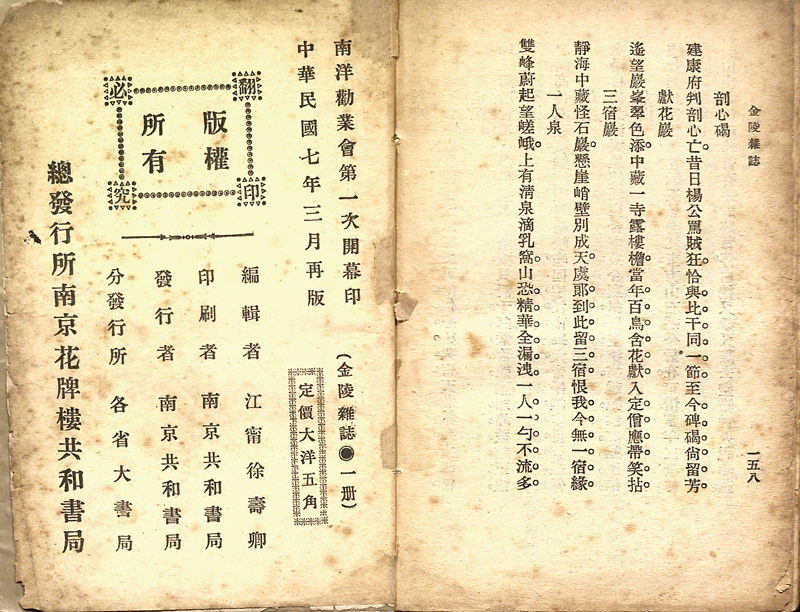 金陵雜誌
一五八
剖心碣
建康府判剖心亡。昔日楊公罵賊狂。恰與比干同一節。至今碑碣尙留芳。
獻花巖
遙望巖峯翠色添。中藏一寺露樓檐。當年百鳥含花獻。入定僧應帶笑拈。
三宿巖
靜海中藏怪石巖。懸崖峭壁別成天。虞郎到此留三宿。恨我今無一宿緣。
一人泉
雙峰蔚起望嵯峨。上有淸泉滴乳窩。山恐精華全漏洩。一人一勺不流多。
南洋勸業會第一次開幕印
(金陵雜誌●一册)
中華民國七年三月再版
定價大洋五角
翻印必究
版權所有
編輯者 江甯徐壽卿
印刷者 南京共和書局
發行者 南京共和書局
分發行所 各省大書局
總發行所南京花牌樓共和書局